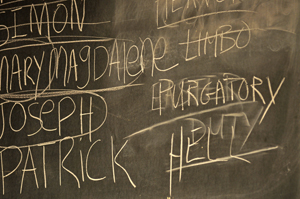 SIMON
MARY MAGDALENE
JOSEPH
PATRICK
LIMBO
PURGATORY
HELL